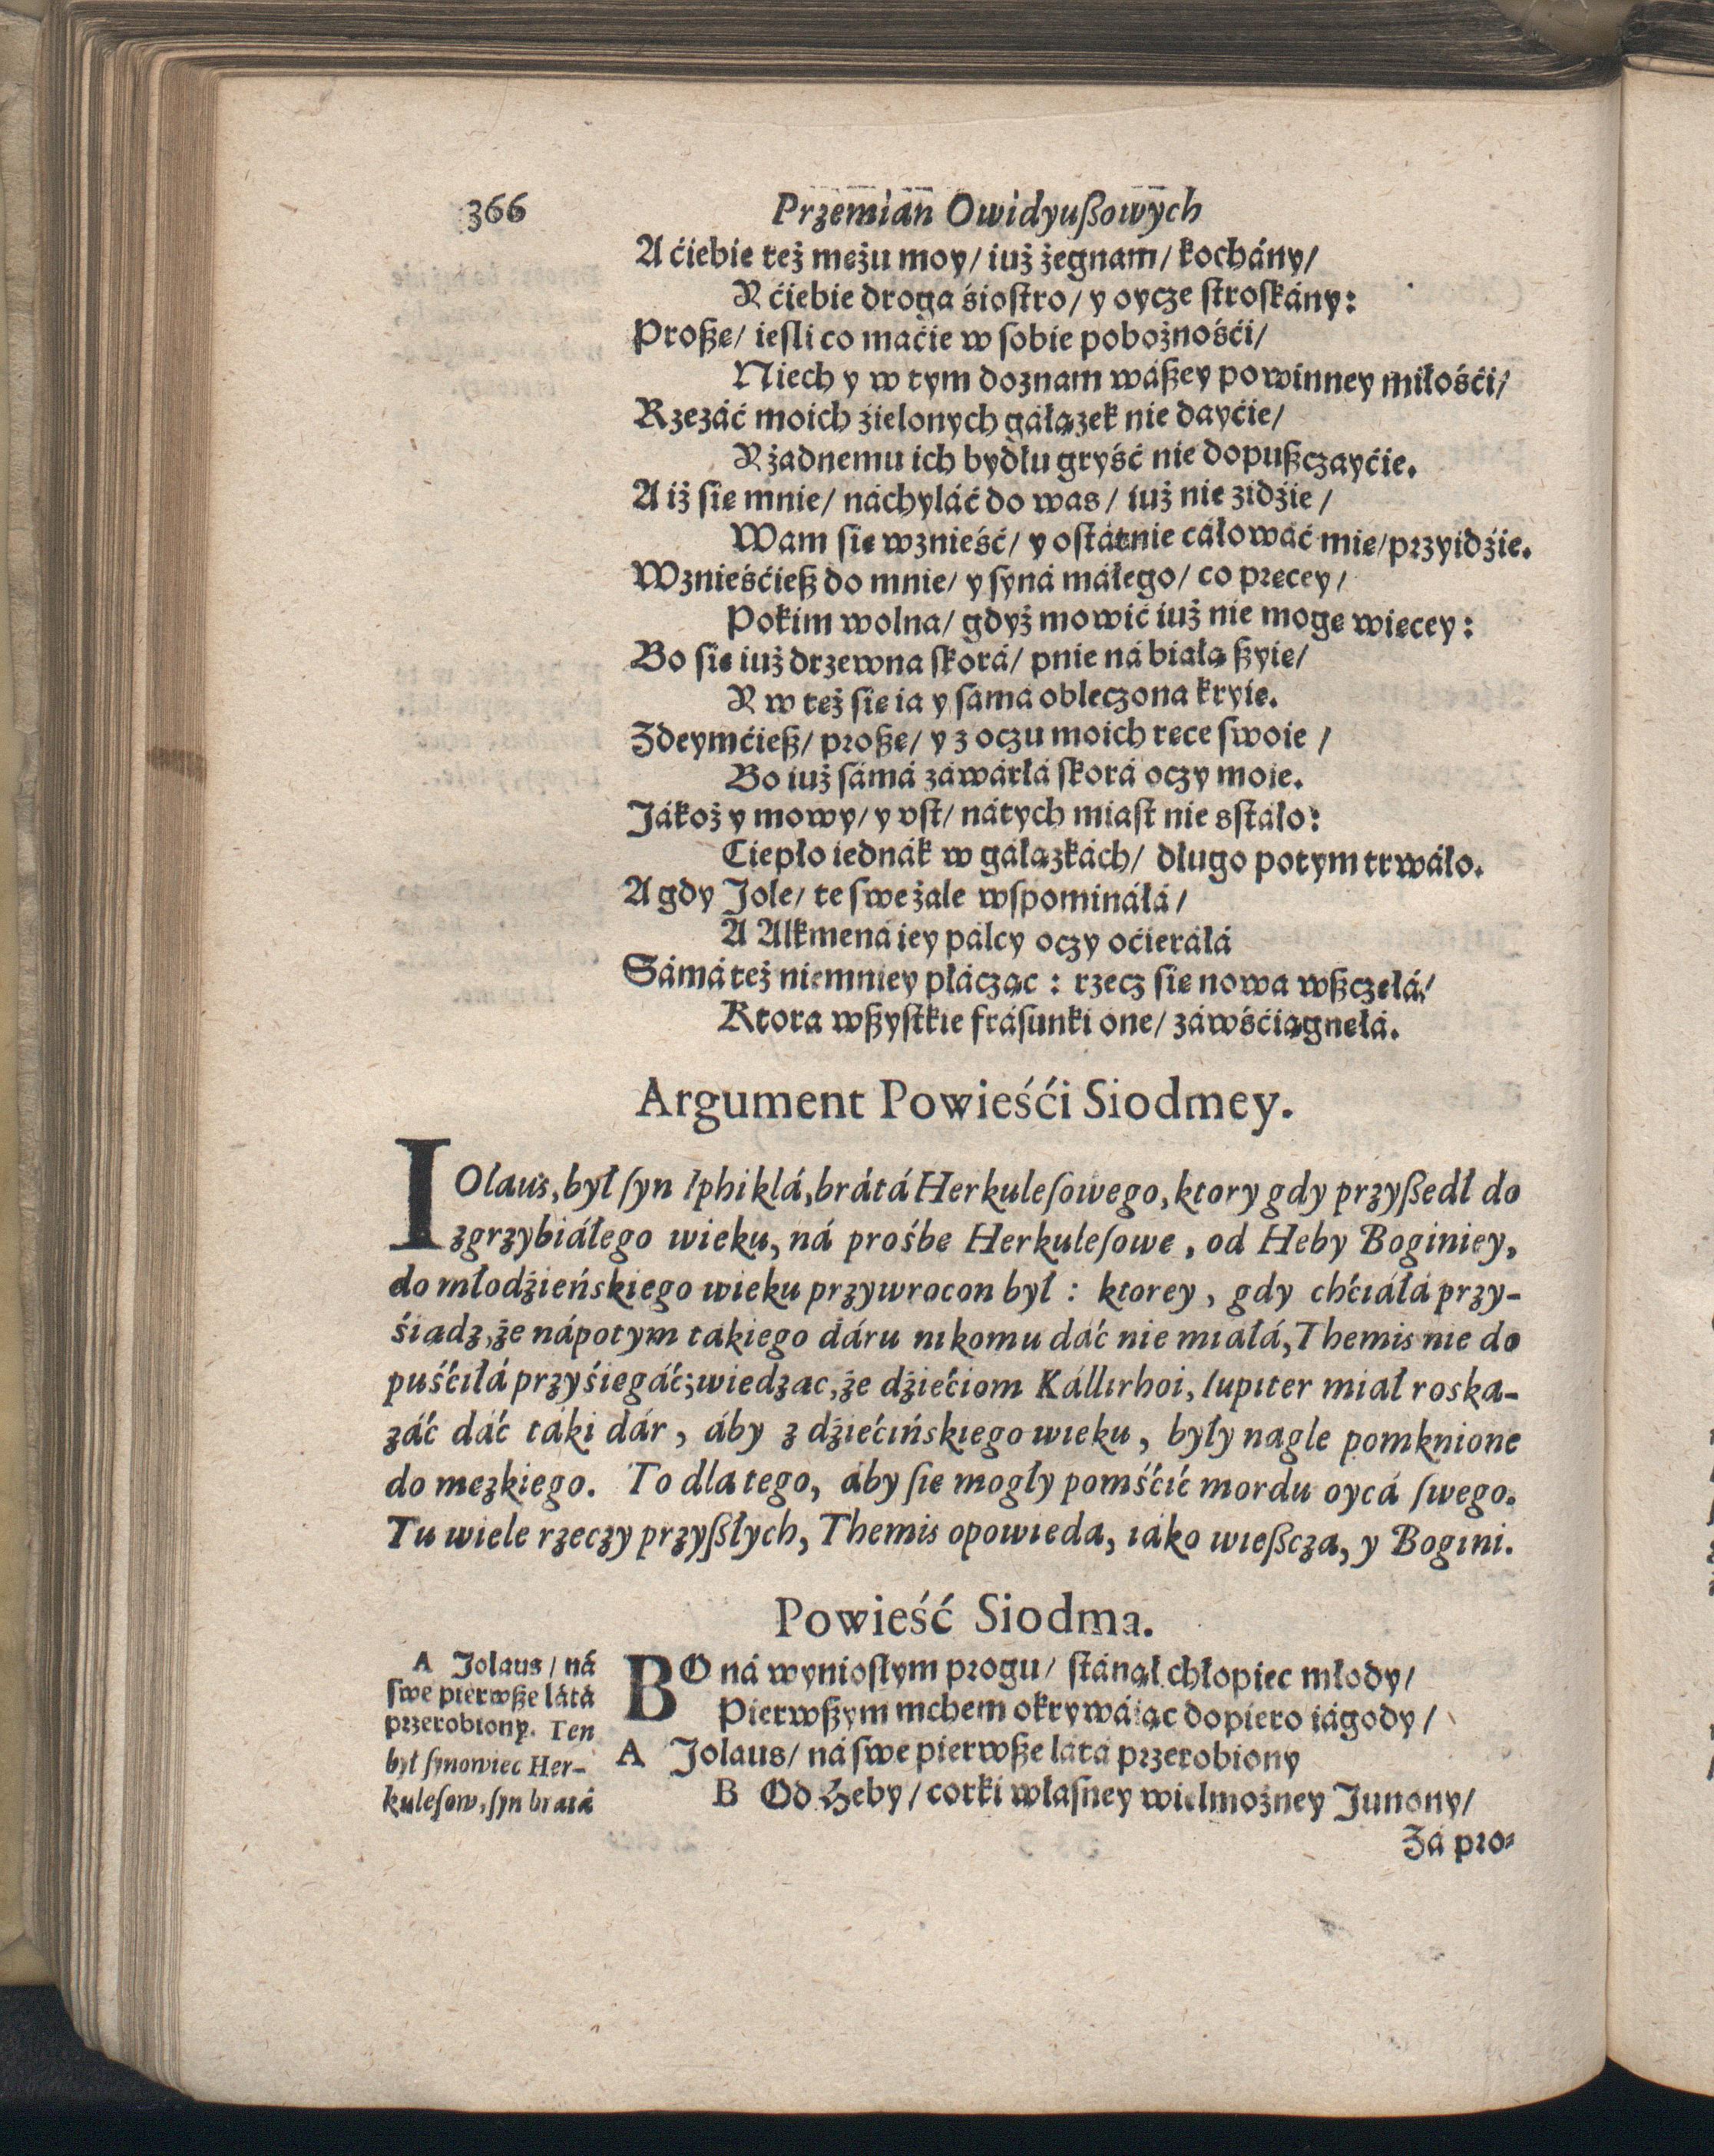 366 Przemian Owidyußowych
A ćiebie też mężu moy/ iuż żegnam/ kochány/
Y ćiebie droga śiostro/ y oycze stroskány:
Proßę/ iesli co maćie w sobie pobożnośći/
Niech y w tym doznam wáßey powinney miłośći/
Rzezáć moich źielonych gáłązek nie dayćie/
Y żadnemu ich bydłu gryść nie dopußczayćie.
A iż się mnie/ náchyláć do was/ iuż nie zidźie/
Wam się wznieść/ y ostátnie cáłowáć mie/przyidźie.
Wznieśćieß do mnie/ y syná máłego/ co pręcey/
Pokim wolna/ gdyż mowić iuż nie mogę więcey:
Bo się iuż drzewna skorá/ pnie ná białą ßyię/
Y w też się ia y sámá obleczona kryię.
Zdeymćieß/ proßę/ y z oczu moich ręce swoie /
Bo iuż sámá záwárłá skorá oczy moie.
Jákoż y mowy/ y vst/ nátych miast nie sstáło:
Ciepło iednák w gáłązkách/ długo potym trwáło.
A gdy Jole/ te swe żale wspomináłá/
A Alkmená iey pálcy oczy oćieráłá
Sámá też niemniey płácząc : rzecz się nowa wßczęłá/
Ktora wßystkie frásunki one/ záwśćiągnęłá.
Argument Powieśći Siodmey.
IOlaus, był syn Iphiklá, brátá Herkulesowego, ktory gdy przyßedł do
zgrzybiáłego wieku, ná prośbę Herkulesowę, od Heby Boginiey,
do młodźieńskiego wieku przywrocon był : ktorey, gdy chćiáłá przy-
śiądz, że nápotym tákiego dáru nikomu dáć nie miáłá, Themis nie do
puśćiłá przyśięgáć; wiedząc, że dźiećiom Kállirhoi, Iupiter miał roska-
záć dáć táki dár, áby z dźiećińskiego wieku, były nagle pomknione
do męzkiego. To dla tego, áby się mogły pomśćić mordu oycá swego.
Tu wiele rzeczy przyßłych, Themis opowieda, iáko wießcza, y Bogini.
Powieść Siodma.
BO ná wyniosłym progu/ stánął chłopiec młody/
Pierwßym mchem okrywáiąc dopiero iágody/
A Jolaus/ ná swe pierwße látá przerobiony
B Od Heby/ corki własney wielmożney Junony/
A Jolaus/ ná
swe pierwße látá
przerobiony. Ten
był synowiec Her-
kulesow, syn brátá
Zá pro-